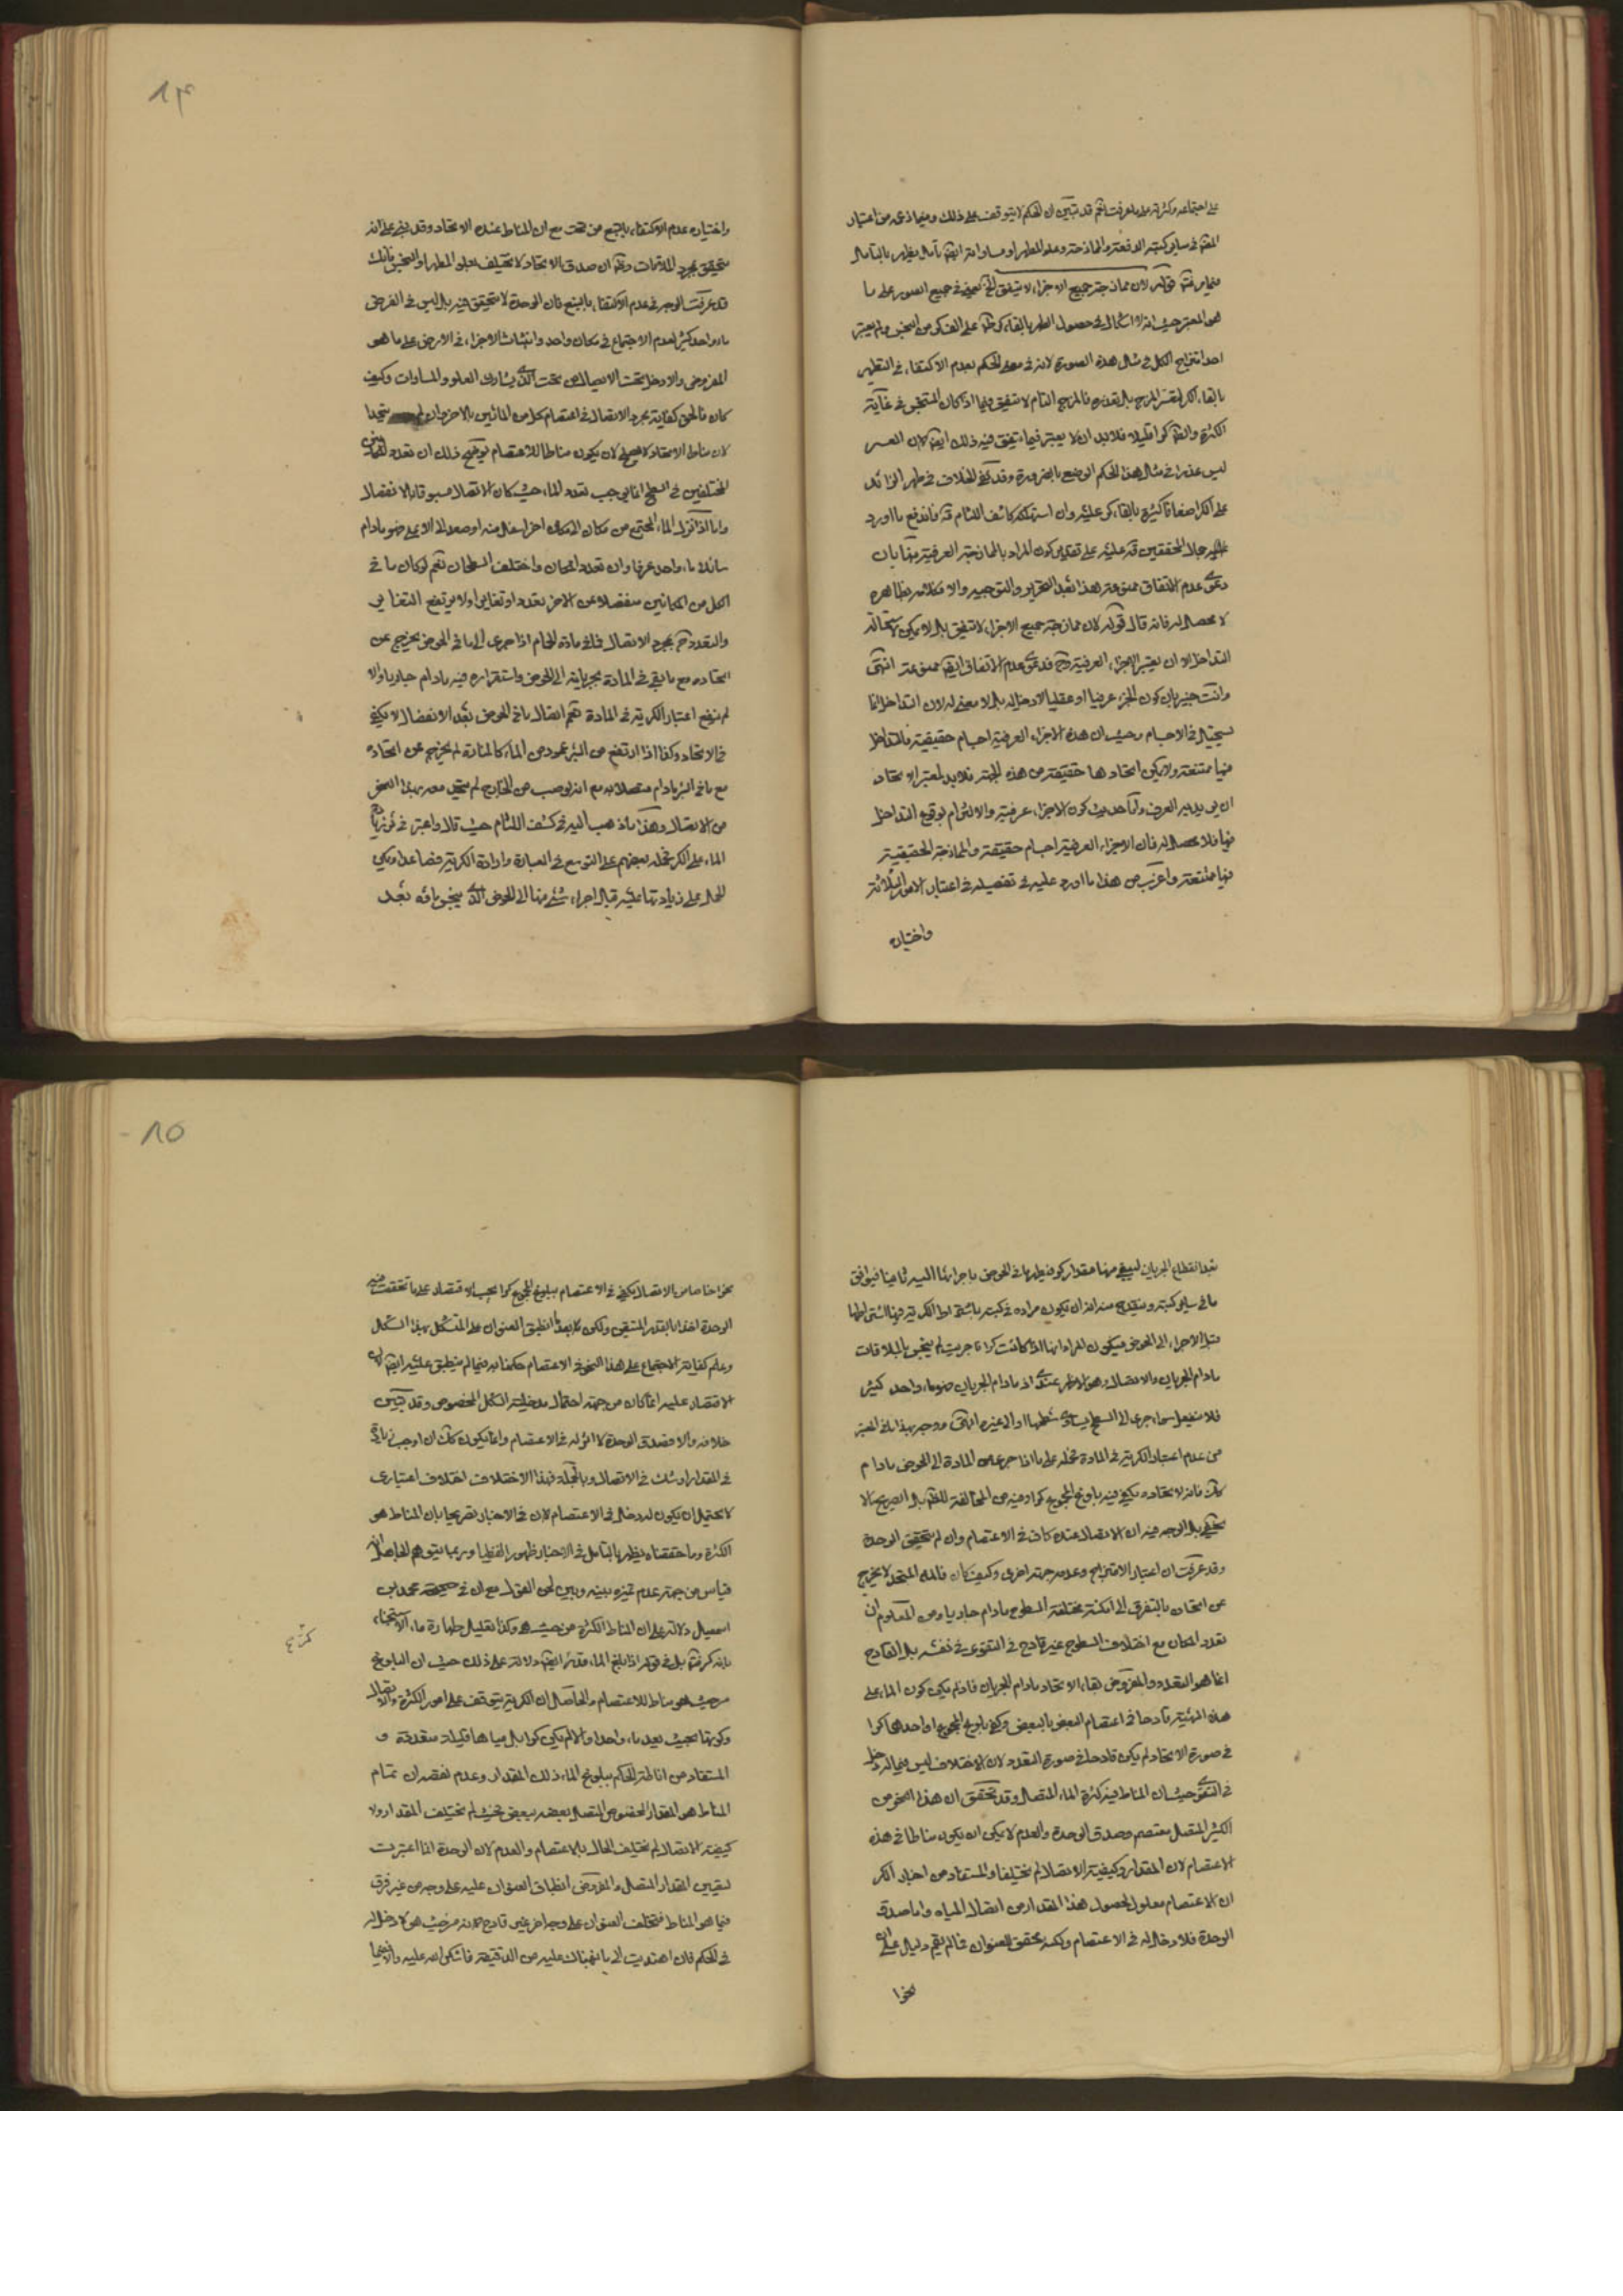 على اجتماعه وكثرته على ما عرفت نعم قد تبين ان الحكم لا يتوقف على ذلك وفيما ذكره من اعتبار
في ساير كتبه الدفعة والممازجة وعلو المطهر او مساواته ايضا تأمل يظهر بالتأمل
قوله لان ممازجة جميع الاجزاء لا يتفق في جميع الصور على ما
هو المعتبر حيث انه لا اشكال في حصول الطهر بالقاء كر على الف كر من النجس ولم يعتبر
احد امتزاج الكل في مثال هذه الصورة لانه في معنى الحكم بعدم الاكتفاء في التطهير
بالقاء الكر فالمزج التام لا يتفق فيما اذا كان المتنجس في غاية
الكثرة كرا قليلا فلا بد ان لا يعتبر فيما يتفق فيه ذلك ايضا لان العسر
ليس عذرا في مثال هذا الحكم الوضعي بالضرورة وقد نفى الخلاف في طهر الزائد
على الكر اضعافا كثيرة بالقاء كر عليه وان استهلكه كاشف اللثام فاندفع ما اورد
جمال المحققين عليه على تقدير كون المراد بالممازجة العرفية بان
دعوى عدم الاتفاق ممنوعة هذا بعد التحرير والتوجيه والا فكلامه بظاهره
لا محصل له فانه قال قوله لان ممازجة جميع الاجزاء لا تتفق بل لا يمكن لاستحالة
التداخل الا ان يعتبر الاجزاء العرفية فدعوى عدم الاتفاق ايضا ممنوعة انتهى
وانت خبير بان كون الجزء عرفيا او عقليا لا دخل له بل لا معنى له لان التداخل انما
يستحيل في الاجسام وحيث ان هذه الاجزاء العرفية اجسام حقيقية فالتداخل
فيها ممتنعة ولا يمكن اتحادها حقيقة من هذه الجهة فلا بد لمعتبر الاتحاد
ان يريد به العرف واما حديث كون الاجزاء عرفية والالتزام بوقوع التداخل
فيها فلا محصل له فان الاجزاء العرفية اجسام حقيقة والممازجة الحقيقية
فيها ممتنعة واغرب من هذا ما اورد عليه في تفصيله في اعتبار الامور الثلاثة
واختياره
١٤
واختياره عدم الاكتفاء بالنبع من تحت مع ان المناط عنده الاتحاد وقد بنى على انه
يتحقق بمجرد الملاقات ان صدق الاتحاد لا يختلف بعلو المطهر او النجس بانك
قد عرفت الوجه في عدم الاكتفاء بالنبع فان الوحدة لا يتحقق فيه بل ليس في الفرض
ماء واحد كثير لعدم الاجتماع في مكان واحد وانبثاث الاجزاء في الارض على ما هو
المفروض والا دخل تحت الاتصال من تحت الذي يشارك العلو والمساوات وكيف
كان فالحق كفاية مجرد الاتصال في اعتصام كل من المائين بالاخر وان لم يتحدا
لان مناط الاتحاد لا يصلح لان يكون مناطا للاعتصام توضيح ذلك ان تعدد المائين
المختلفين في السطح انما يوجب تعدد الماء حيث كان الاتصال مسبوقا بالانفصال
واما اذا نزل الماء المجتمع من مكان الى مكان اخر اسفل منه او صعد الى الاعلى فهو مادام
سائلا ماء واحد عرفا وان تعدد المكان واختلف السطحان نعم لو كان ما في
الكل من المكانين منفصلا عن الاخر تعددا وتغايرا ولا يرتفع التغاير
والتعدد بمجرد الاتصال فما في مادة الحمام اذا جرى الى ما في الحوض يخرج عن
اتحاده مع ما بقي في المادة بجريانه الى الحوض واستقراره فيه مادام جاريا والا
لم ينفع اعتبار الكرية في المادة نعم اتصال ما في الحوض بعد الانفصال لا يكفي
في الاتحاد وكذا اذا ارتفع من البئر عمود من الماء كالمنارة لم يخرج عن اتحاده
مع ما في البئر مادام متصلا به مع انه لو صب من الخارج لم يتحد معه بهذا النحو
من الاتصال وهكذا ما ذهب اليه في كشف اللثام حيث قال واعتبر في زيادة
الماء على الكر فحمله بعضهم على التوسع في العبارة وارادة الكرية فصاعدا ويمكن
الحمل على زيادتها عليه قبل اجراء شئ منها الى الحوض الذي ينجس ماؤه بعد
بعد انقطاع الجريان ليبقى منها مقدار كر فيطهر ما في الحوض باجرائها اليه ثانيا فيوافق
ما في ساير كتبه وينقدح منه انه ان يكون مراده في كتبه باشتراط الكرية فيها اشتراطها
قبل الاجراء الى الحوض فيكون المراد انها اذا كانت كرا فاجريت لم ينجس بالملاقات
مادام الجريان والاتصال وهو الاظهر عندي اذ مادام الجريان فهو ماء واحد كثير
فلا ينفعل سواء جرى الى السطح يساوي سطحها او الى غيره انتهى ووجه بهذا ما في المعتبر
من عدم اعتبار الكرية في المادة فحمله على ما اذا جرى من المادة الى الحوض مادام
فانه لاتحاده يكفي فيه بلوغ المجموع كرا وفيه من المخالفة للظهر بل الصريح ما لا
يخفى بل الوجه فيه ان الاتصال عنده كاف في الاعتصام وان لم يتحقق الوحدة
وقد عرفت ان اعتبار الامتزاج وعدمه جهة اخرى وكيف كان فالماء المتحد لا يخرج
عن اتحاده بالتفرق الى امكنة مختلفة السطوح مادام جاريا ومن المعلوم ان
تعدد المكان مع اختلاف السطوح غير قادح في التقوى في نفسه بل القادح
انما هو التعدد والمفروض بقاء الاتحاد مادام الجريان فاذا لم يكن كون الماء على
هذه الهيئة قادحا في اعتصام البعض بالبعض وكفى بلوغ المجموع او احدهما كرا
في صورة الاتحاد لم يكن قادحا في صورة التعدد لان الاختلاف ليس فيما له دخل
في التقوى حيث ان المناط فيه كثرة الماء المتصل وقد تحقق ان هذا النحو من
الكثير المتصل معتصم وصدق الوحدة والعدم لا يمكن ان يكون مناطا في هذه
الاعتصام لان المقدار وكيفية الاتصال لم يختلفا والمستفاد من اخبار الكر
ان الاعتصام معلول لحصول هذا المقدار من اتصال المياه واما صدق
الوحدة فلا دخل له في الاعتصام ولكنه محقق للعنوان فما لم يقم دليل على ان
نحوا
١٥
نحوا خاصا من الاتصال يكفي في الاعتصام ببلوغ المجموع كرا يجب الاقتصار على ما تحققت فيه
الوحدة اخذا بالقدر المتيقن ولكن بعد انطبق العنوان على المتشكل بهذا الشكل
وعلم كفاية الاجتماع على هذا النحو في الاعتصام حكمنا به فيما لم ينطبق عليه ايضا لان
الاقتصار عليه انما كان من جهة احتمال مدخلية الشكل المخصوص وقد تبين
خلافه والا فصدق الوحدة لا اثر له في الاعتصام وانما يكون كذلك ان اوجب زيادة
في المقدار او شك في الاتصال وبالجملة فهذا الاختلاف اختلاف اعتباري
لا يحتمل ان يكون له دخل في الاعتصام لان في الاخبار تصريحا بان المناط هو
الكثرة وما حققناه يظهر بالتأمل في الاخبار ظهورا لفظيا وربما يتوهم الجاهل انه
قياس من جهة عدم تميزه بينه وبين لحن القول مع ان في صحيحة محمد بن
اسمعيل دلالة على ان المناط الكثرة من حيث هو وكذا تعليل طهارة ماء الاستنجاء
بانه اكثر بل في قوله اذا بلغ الماء قدر ايضا دلالة على ذلك حيث ان البلوغ
من حيث هو مناط للاعتصام والحاصل ان الكرية يتوقف على امور الكثرة والاتصال
وكونها بحيث يعد ماء واحدا والا لم يكن كرا بل مياها قليلة متعددة و
المستفاد من اناطة الحكم ببلوغ الماء ذلك المقدار وعدم نقصه ان تمام
المناط هو المقدار المخصوص المتصل بعضه ببعض فحيث لم يختلف المقدار ولا
كيفية الاتصال لم يختلف الحال بالاعتصام والعدم لان الوحدة انما اعتبرت
لتعيين المقدار المتصل والمفروض انطباق العنوان عليه على وجه من غير فرق
فيما هو المناط فتخلف العنوان على وجه اخر غير قادح لانه من حيث هو لا دخل له
في الحكم فان اهتديت الى ما نبهناك عليه من الدقيقة فاشكر الله عليه والا فلا